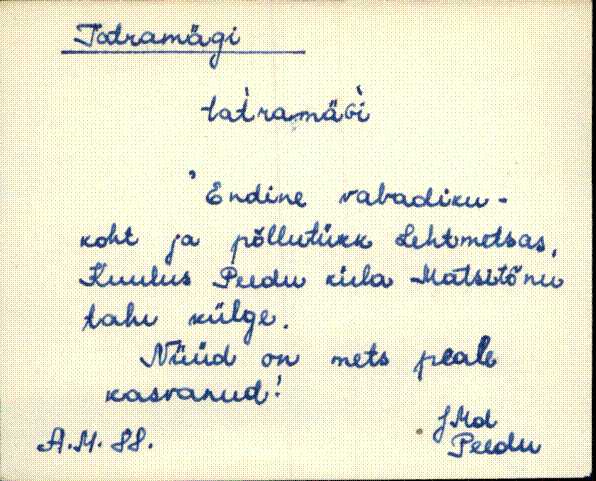 Tatramägi
tat̀ramäGì
'Endine vabadiku-
koht ja põllutükk Lehtmetsas,
Kuulus Peedu küla Matsitõnu
talu külge.
Nüüd on mets peale
kasvanud'
JMd
A.M. 88.
Peedu